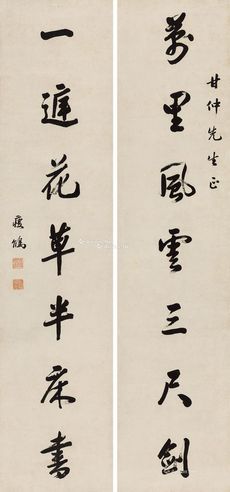 萬里風雲三尺劍
甘仲先生正
一遲花草半床書